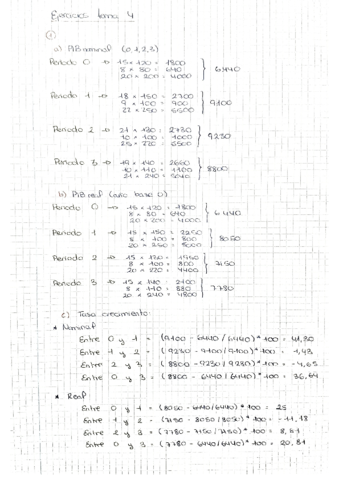 Ejercicios tema 4
①
a) PIB nominal (0,1,2,3)
Periodo 0 → 15 × 120 = 1800
8 × 80 = 640
20 × 200 = 4000 } 6440
Periodo 1 → 18 × 150 = 2700
9 × 100 = 900
22 × 250 = 5500 } 9100
Periodo 2 → 21 × 130 = 2730
10 × 100 = 1000
25 × 220 = 5500 } 9230
Periodo 3 → 19 × 140 = 2660
10 × 110 = 1100
21 × 240 = 5040 } 8800
b) PIB real (año base 0)
Periodo 0 → 15 × 120 = 1800
8 × 80 = 640
20 × 200 = 4000 } 6440
Periodo 1 → 15 × 150 = 2250
8 × 100 = 800
20 × 250 = 5000 } 8050
Periodo 2 → 15 × 130 = 1950
8 × 100 = 800
20 × 220 = 4400 } 7150
Periodo 3 → 15 × 140 = 2100
8 × 110 = 880
20 × 240 = 4800 } 7780
c) Tasa crecimiento:
* Nominal
Entre 0 y 1 = (9100 - 6440 / 6440) * 100 = 41,30
Entre 1 y 2 = (9230 - 9100 / 9100) * 100 = 1,43
Entre 2 y 3 = (8800 - 9230 / 9230) * 100 = -4,65
Entre 0 y 3 = (8800 - 6440 / 6440) * 100 = 36,64
* Real
Entre 0 y 1 = (8050 - 6440 / 6440) * 100 = 25
Entre 1 y 2 = (7150 - 8050 / 8050) * 100 = -11,18
Entre 2 y 3 = (7780 - 7150 / 7150) * 100 = 8,81
Entre 0 y 3 = (7780 - 6440 / 6440) * 100 = 20,81